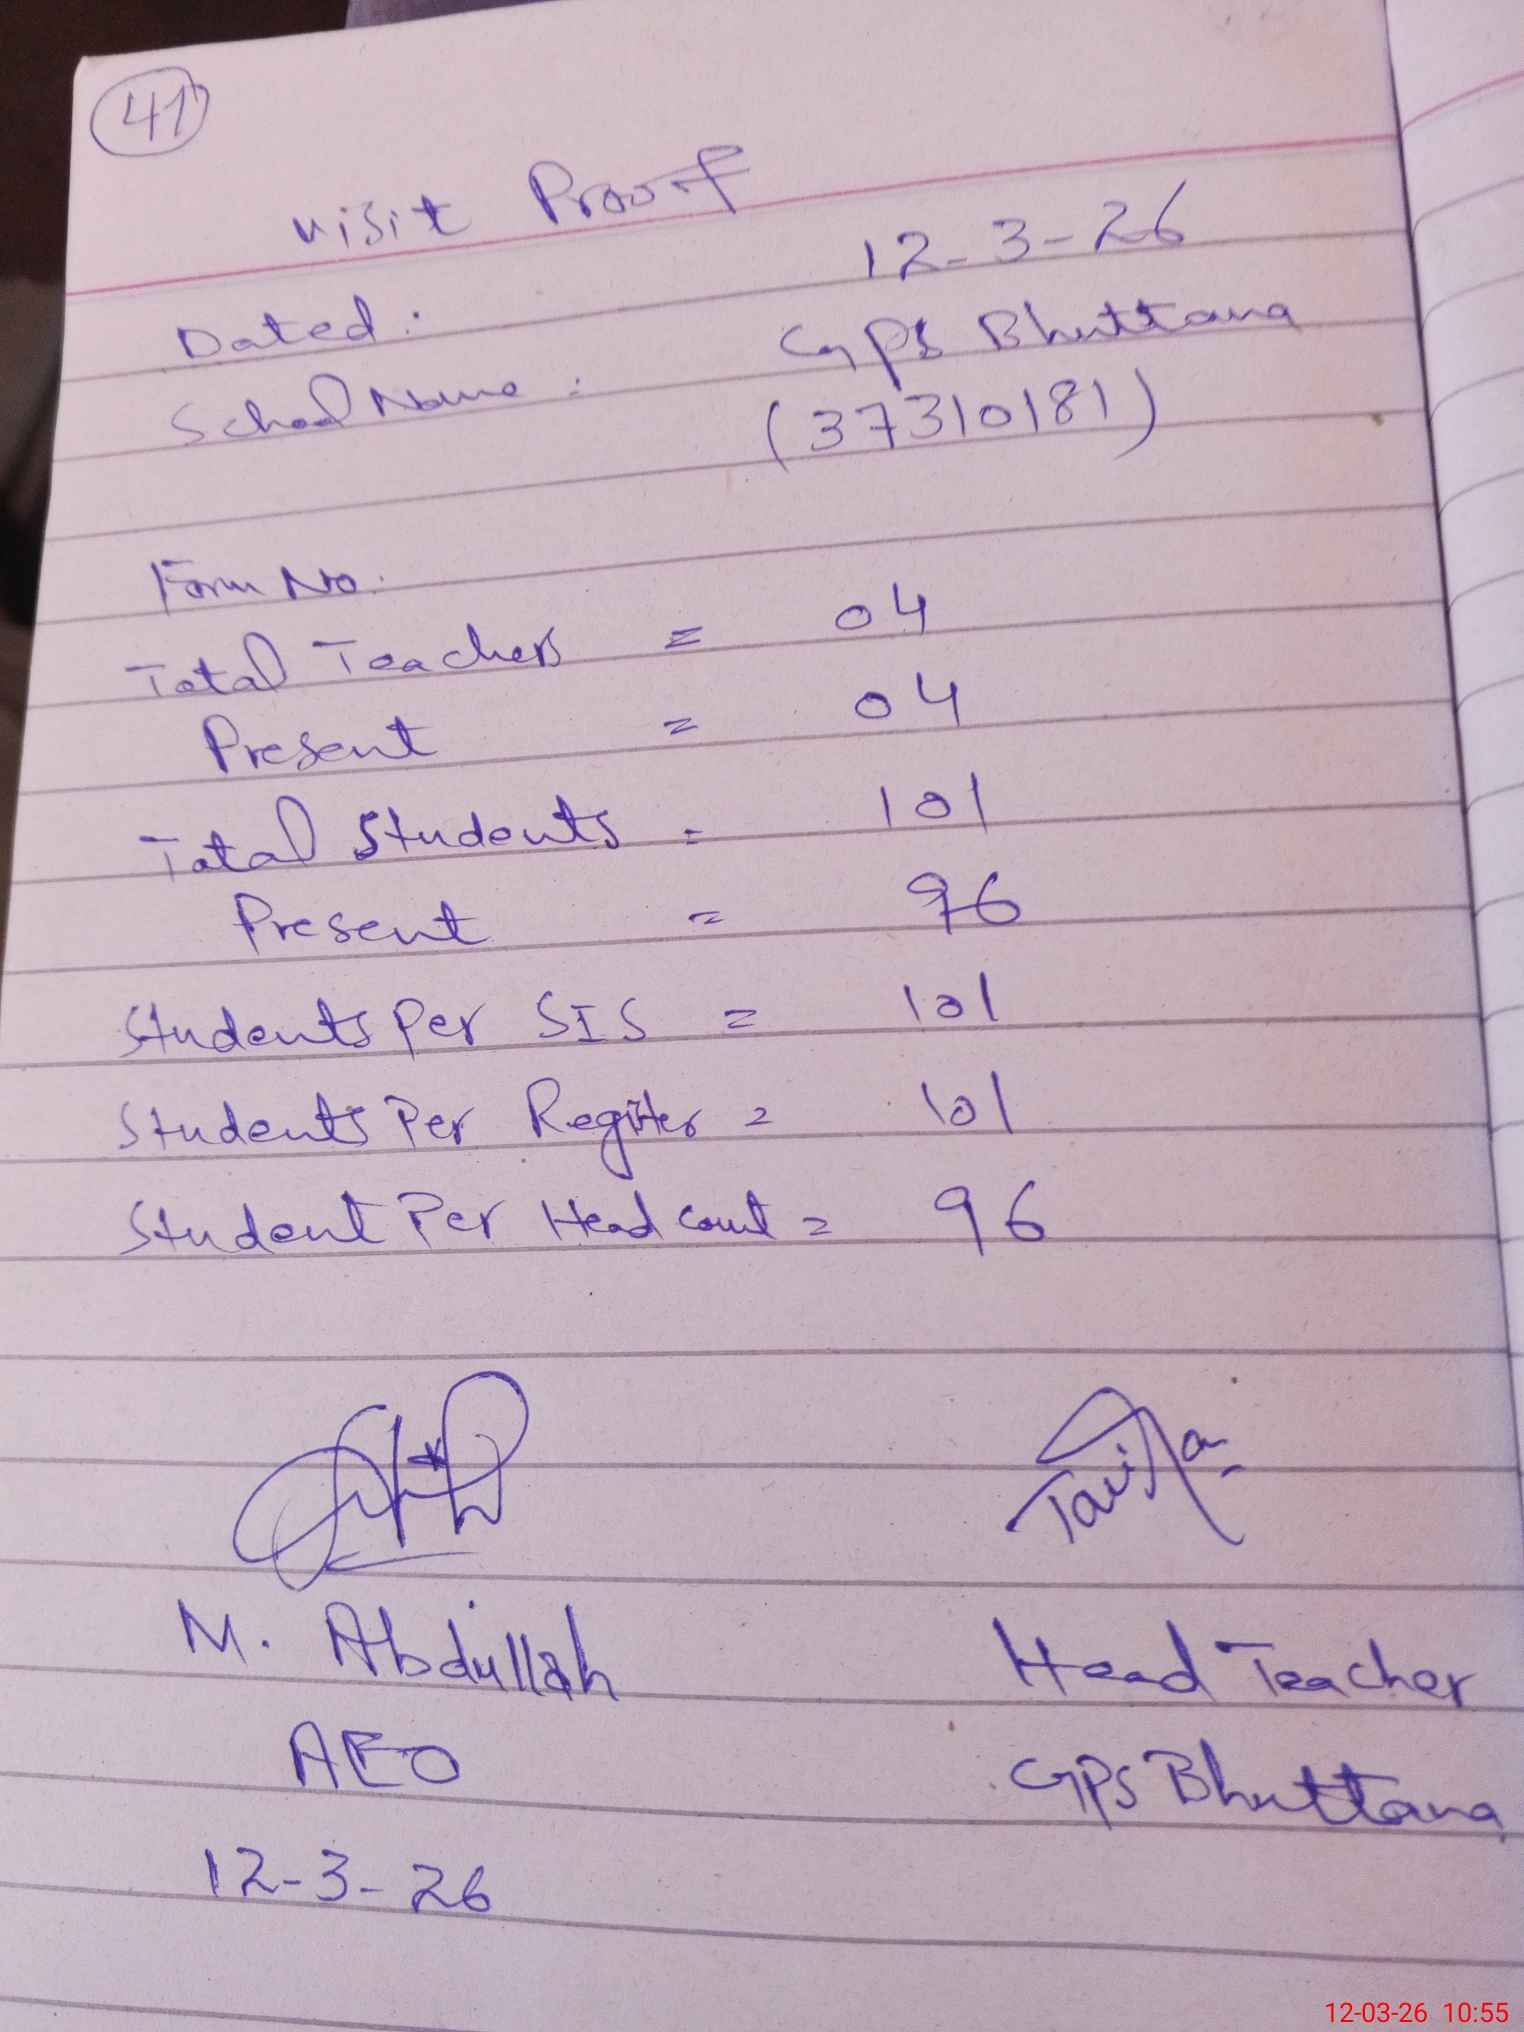 41
Visit Proof
Dated: 12-3-26
School Name: GPS Bhuttana
(37310181)
Form No.
Total Teachers = 04
Present = 04
Total Students = 101
Present = 96
Students Per SIS = 101
Students Per Register = 101
Student Per Head Count = 96
M. Abdullah
Head Teacher
AEO
GPS Bhuttana
12-3-26
12-03-26 10:55